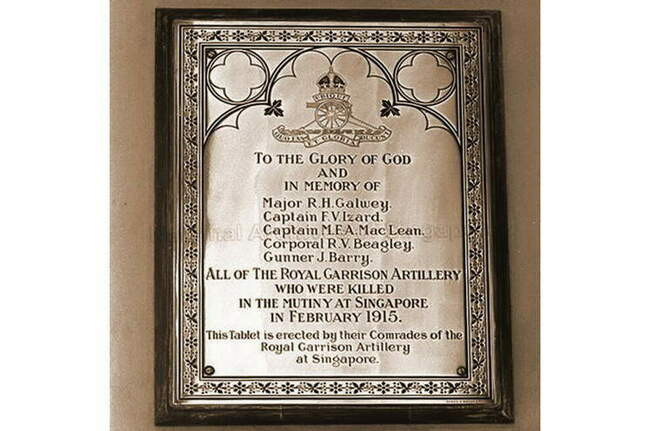 UBIQUE
TO THE GLORY OF GOD
AND
IN MEMORY OF
Major R.H. Galwey.
Captain F.V. Izard.
Captain M.F.A. Mac Lean.
Corporal R.V. Beagley.
Gunner J. Barry.
ALL OF THE ROYAL GARRISON ARTILLERY
WHO WERE KILLED
IN THE MUTINY AT SINGAPORE
IN FEBRUARY 1915.
This Tablet is erected by their Comrades of the
Royal Garrison Artillery
at Singapore.